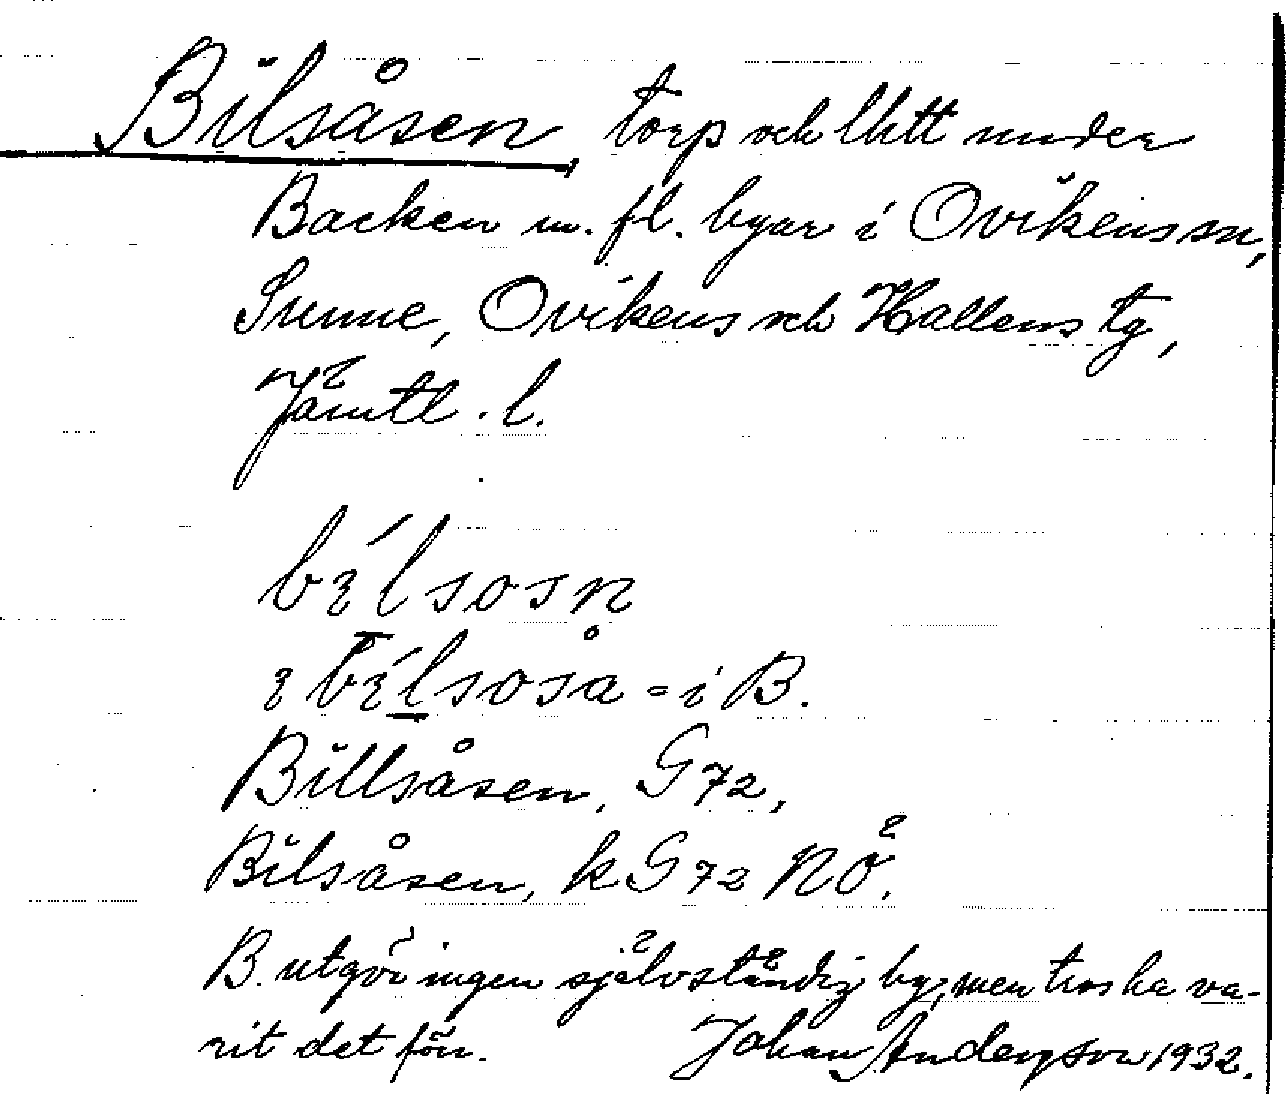 Bilsåsen, torp och lhtt under
Backen m. fl. byar i Ovikens sn,
Sunne, Ovikens och Hallens tg,
Jämtl. l.
bɛ́lsosn
ɛ bɛ́lsoså = i B.
Billsåsen, G 72,
Bilsåsen, kG 72 NÖ.
B. utgör ingen självständig by, men tros ha va-
rit det förr. Johan Anderson 1932.